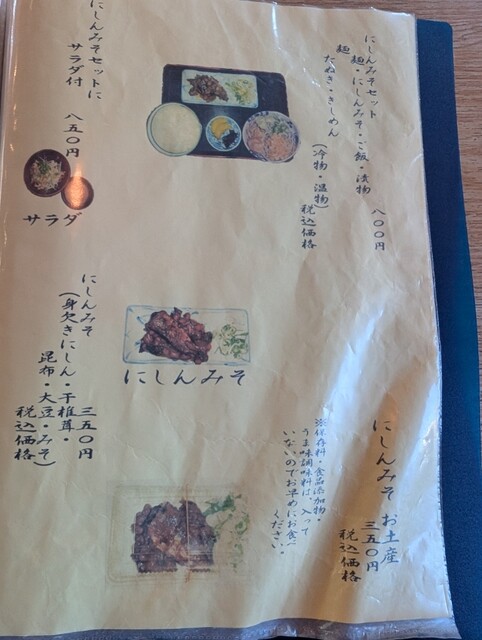 にしんみそセット　八〇〇円
麺・にしんみそ・ご飯・漬物
麺
たぬき・きしめん
(冷物・温物)　税込価格
にしんみそセットに
サラダ付　八五〇円
サラダ
にしんみそ　三五〇円
(身欠きにしん・干椎茸・
昆布・大豆・みそ)
税込価格
にしんみそ
にしんみそ　お土産
三五〇円
税込価格
※保存料・食品添加物・
うま味調味料は、入って
いないのでお早めにお食べ
ください。